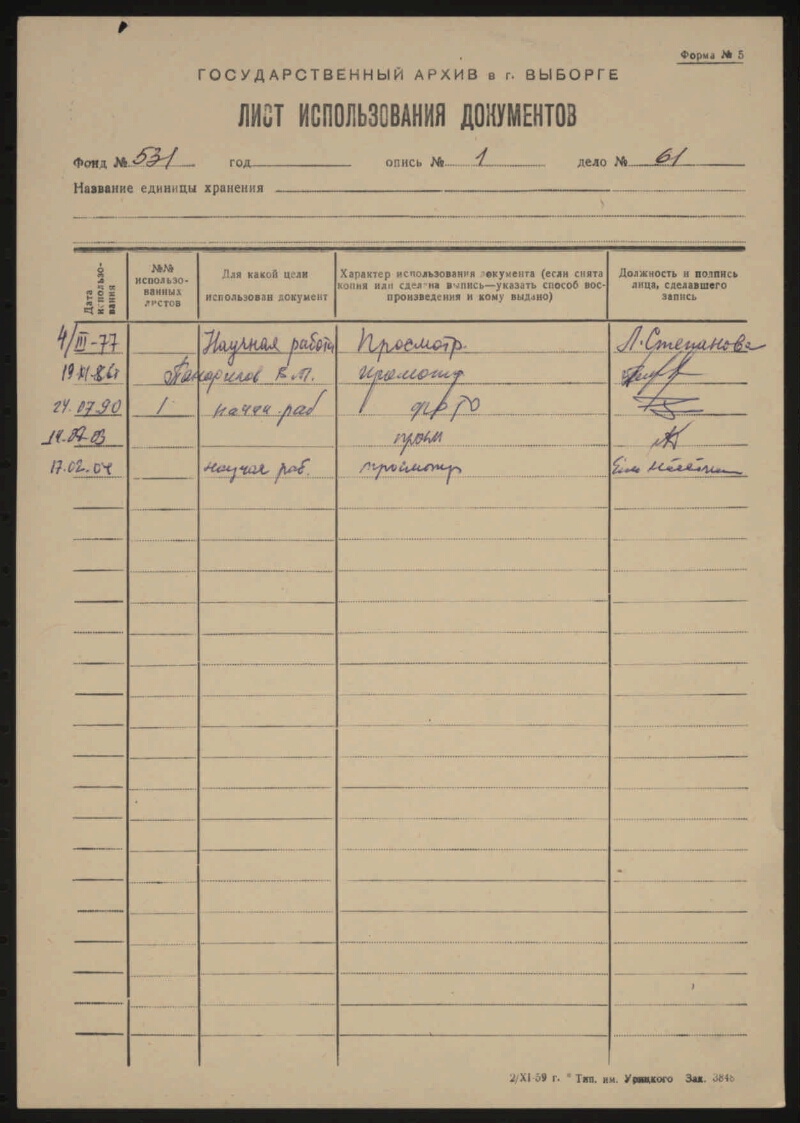 Форма № 5
ГОСУДАРСТВЕННЫЙ АРХИВ в г. ВЫБОРГЕ
ЛИСТ ИСПОЛЬЗОВАНИЯ ДОКУМЕНТОВ
Фонд № 531 год опись № 1 дело № 61
Название единицы хранения
Дата использо-вания
№№ использо-ванных листов
Для какой цели использован документ
Характер использования документа (если снята копия или сделана выпись—указать способ вос-произведения и кому выдано)
Должность и подпись лица, сделавшего запись
4/III-77 Научная работа Просмотр. Л. Степанова
В. П. просмотр
24.07.90 1 научн раб фото
просм
17.02.04 научая раб. просмотр
2/XI 59 г. * Тип. им. Урицкого Зак. 3848